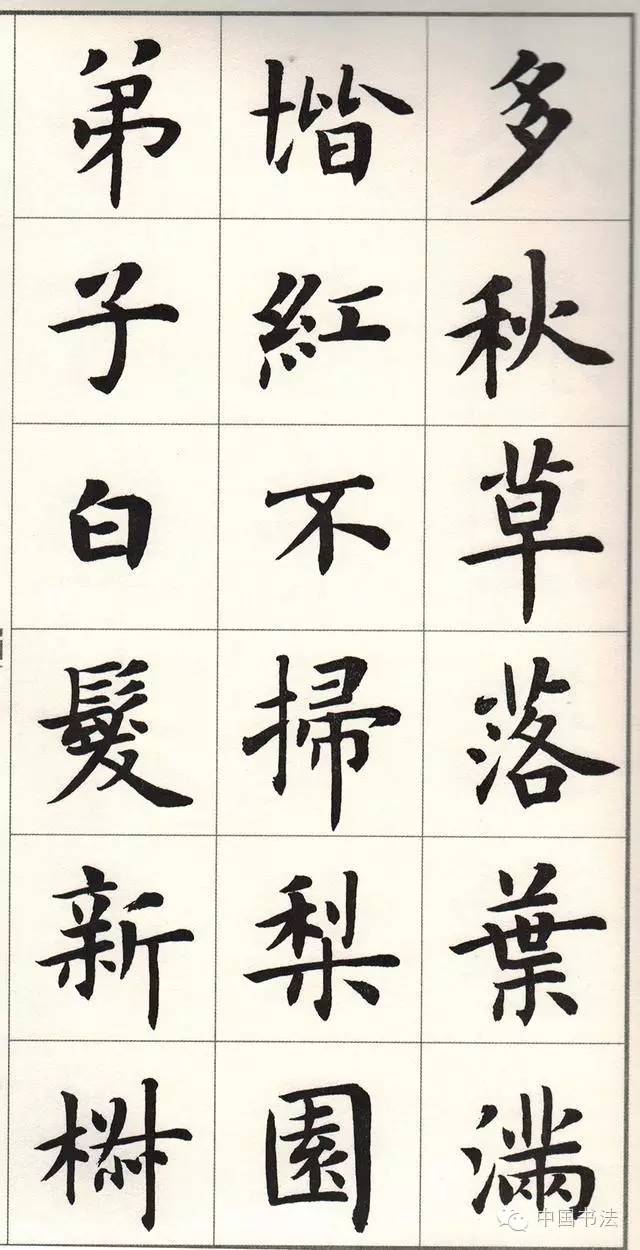 多秋草落葉滿
堦紅不掃梨園
弟子白髮新椒
中国书法